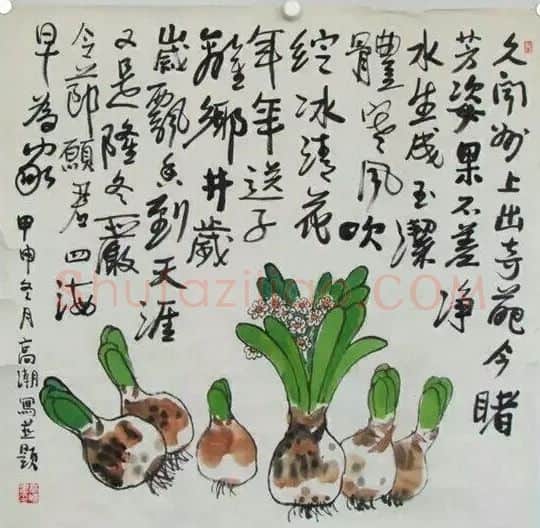 久闻州上出奇葩今睹
芳姿果不差净
水生成玉潔
體寒风吹
綻冰清花
年年送子
離鄉井歲
歲飄香到天涯
又是隆冬嚴
令節願君四海
早為家
甲申冬月高潮寫並題
Shufaziliao.COM